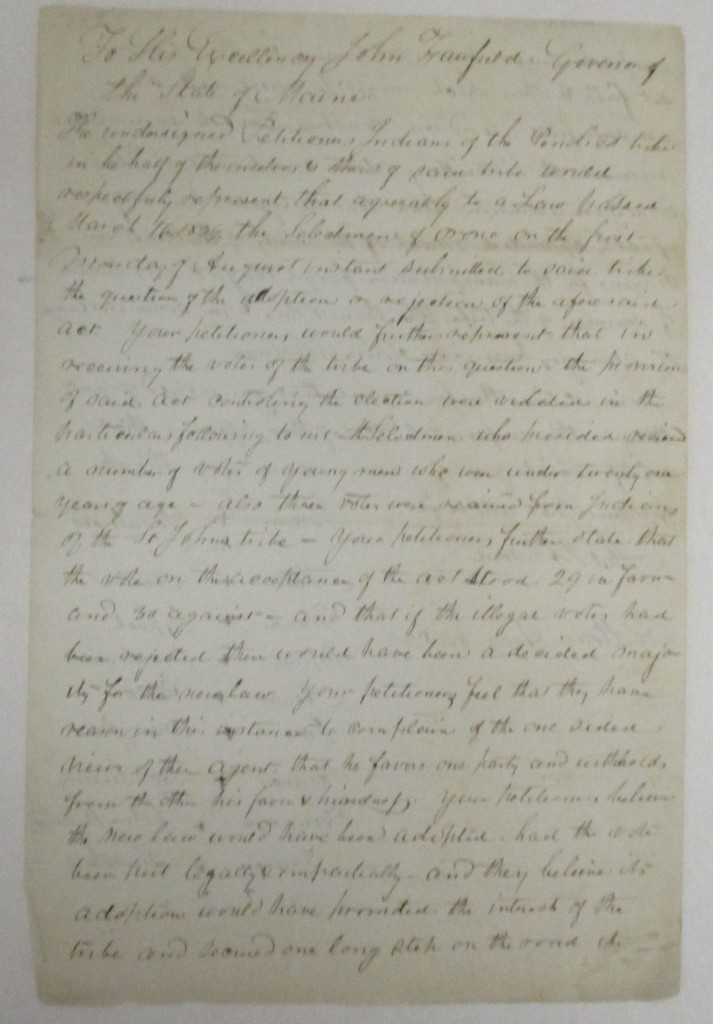 To His Excellency John Fairfield Governor of
the State of Maine
The undersigned Petitioners Indians of the Penobscot tribe
in behalf of themselves & others of said tribe would
respectfully represent, that agreeably to a Law passed
March 16 the Selectmen of Orono on the first
Monday of August instant submitted to said tribe
the question of the adoption or rejection of the aforesaid
act Your petitioners would further represent that in
receiving the votes of the tribe on this question the provisions
of said act controling the election were violated in the
particulars following to wit the Selectmen who presided received
a number of votes of young men who were under twenty one
years of age – also three votes were received from Indians
of the St Johns tribe – Your petitioners further state that
the vote on the acceptance of the act stood 29 in favor
and 30 against – and that if the illegal votes had
been rejected there would have been a decided major
ity for the new law Your petitioners feel that they have
reason in this instance to complain of the one sided
views of their agent, that he favors one party and withholds
from the other his favor & kindness, Your petitioners believe
the new law would have been adopted had the vote
been put legally & impartially – and they believe its
adoption would have promoted the interest of the
tribe and secured one long step on the road